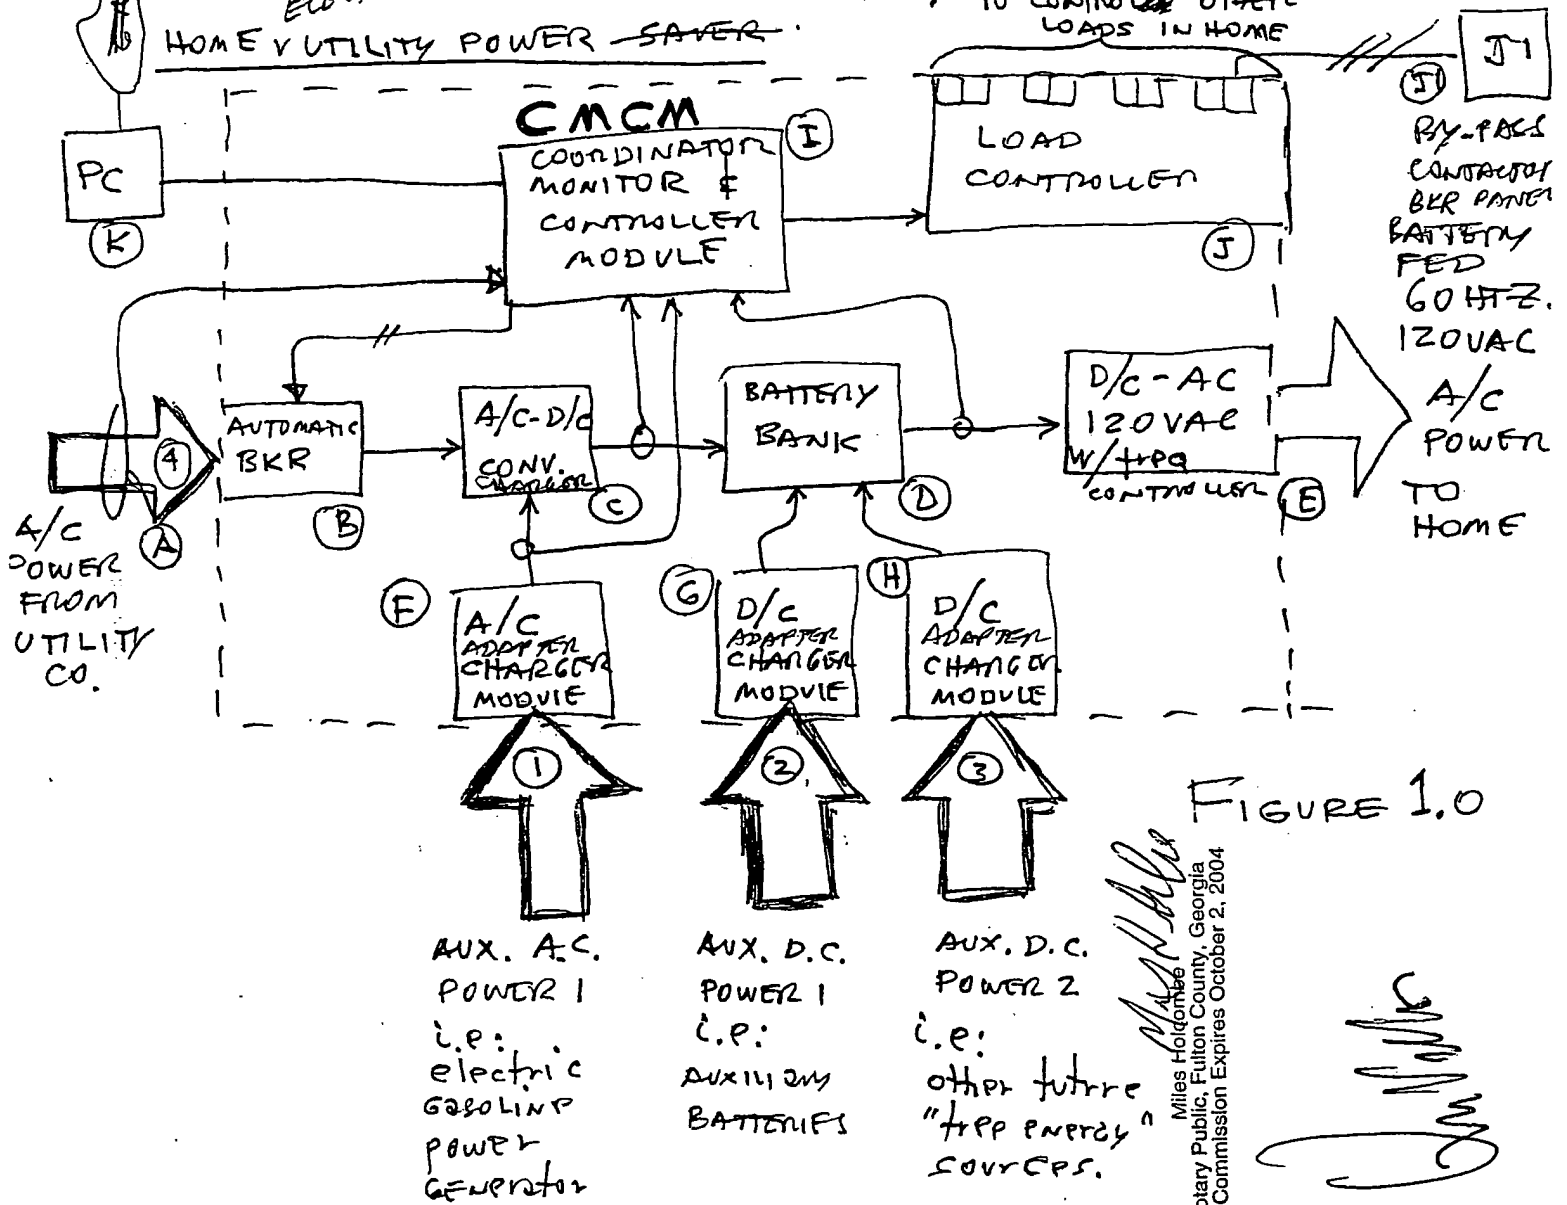 HOME & UTILITY POWER SAVER.
TO CONTROL OTHER
LOADS IN HOME
J1
J1
BY-PASS
CONTACTOR
BKR PANEL
BATTERY
FED
60 HTZ.
120VAC
PC
K
CMCM
COORDINATOR
MONITOR &
CONTROLLER
MODULE
I
LOAD
CONTROLLER
J
4
A
A/C
POWER
FROM
UTILITY
CO.
AUTOMATIC
BKR
B
A/C-D/C
CONV.
CHARGER
C
BATTERY
BANK
D
D/C-AC
120VAC
W/freq
CONTROLLER
E
A/C
POWER
TO
HOME
F
A/C
ADAPTER
CHARGER
MODULE
G
D/C
ADAPTER
CHARGER
MODULE
H
D/C
ADAPTER
CHARGER
MODULE
1
2
3
FIGURE 1.0
AUX. A.C.
POWER 1
i.e:
electric
GASOLINE
POWER
GENERATOR
AUX. D.C.
POWER 1
i.e:
AUXILIARY
BATTERIES
AUX. D.C.
POWER 2
i.e:
other future
"free energy"
sources.
Miles Holcombe
otary Public, Fulton County, Georgia
Commission Expires October 2, 2004